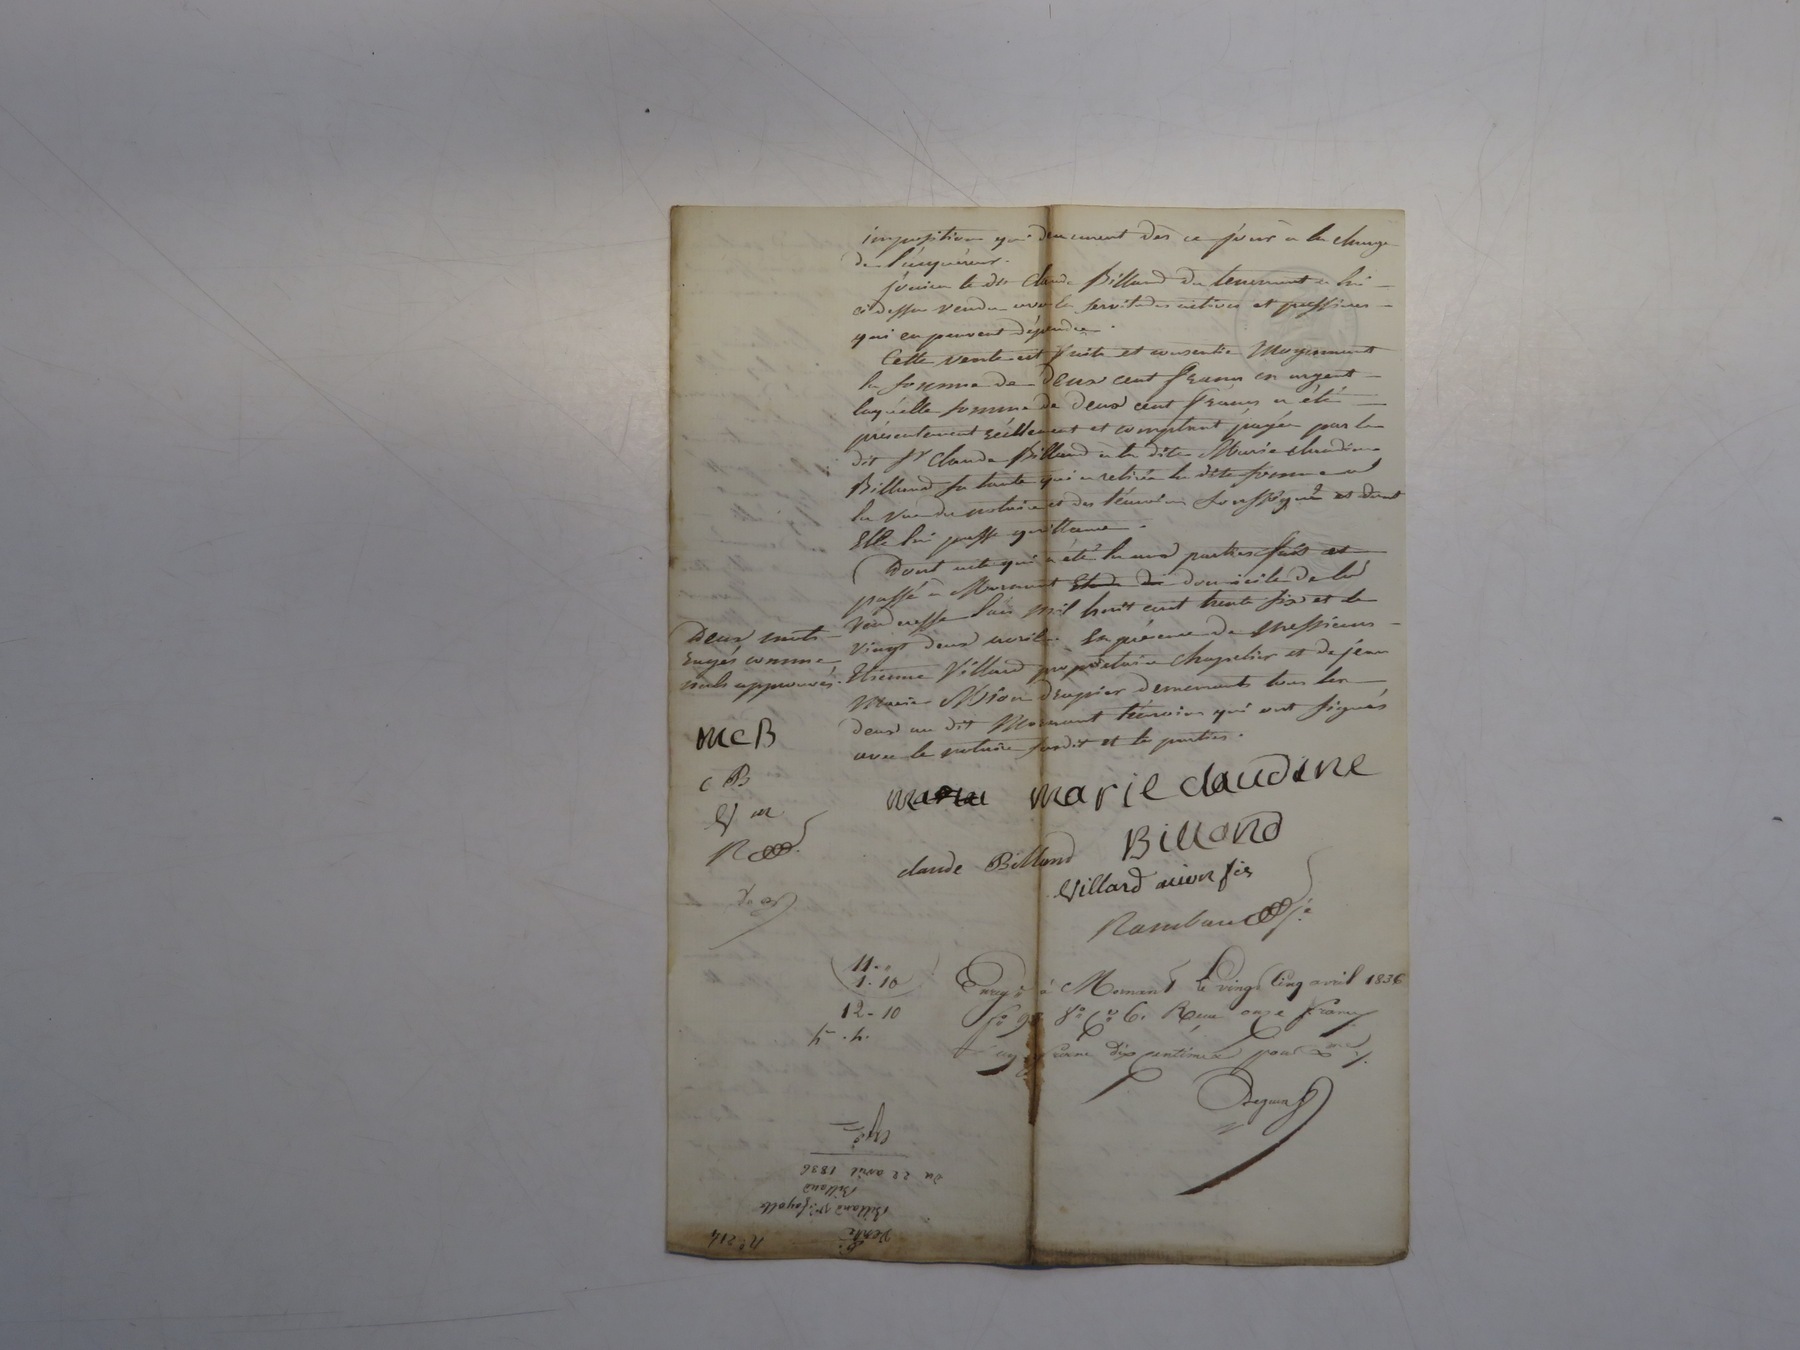 imposition qui demeurent dès ce jour à la charge
de l'acquéreur.
jouira le dit Claude Billand du tenement à lui
ci dessus vendu avec les servitudes actives et passives
qui en peuvent dépendre.
Cette vente est faite et consentie Moyennant
la somme de deux cent francs en argent
laquelle somme de deux cent francs a été
présentement réellement et comptant payée par le
dit Sr Claude Billand à la dite Marie Claudine
Billand sa tante qui a retirée la dite somme a
la vue du notaire et des témoins soussignés et dont
Elle lui passe quittance.
Dont acte qui a été lu aux parties fait et
passé à Mornant domicile de la
venderesse l'an mil huit cent trente six et le
vingt deux avril. En présence de Messieurs
Etienne Villard propriétaire Chapelier et de jean
Marie drapier demeurants tous les
deux au dit Mornant témoins qui ont signés
avec le notaire susdit et les parties.
Deux mots
rayés comme
nuls approuvés.
MCB
CB
R
marie claudine
Billand
claude Billand
Villard
11.
1.10
12-10
Enregé à Mornant le vingt Cinq avril 1836
fo 8o Co 6. Reçu onze francs
un franc dix centimes pour
Deguin
no 214
Vente
Billand
Billand
du 22 avril 1836